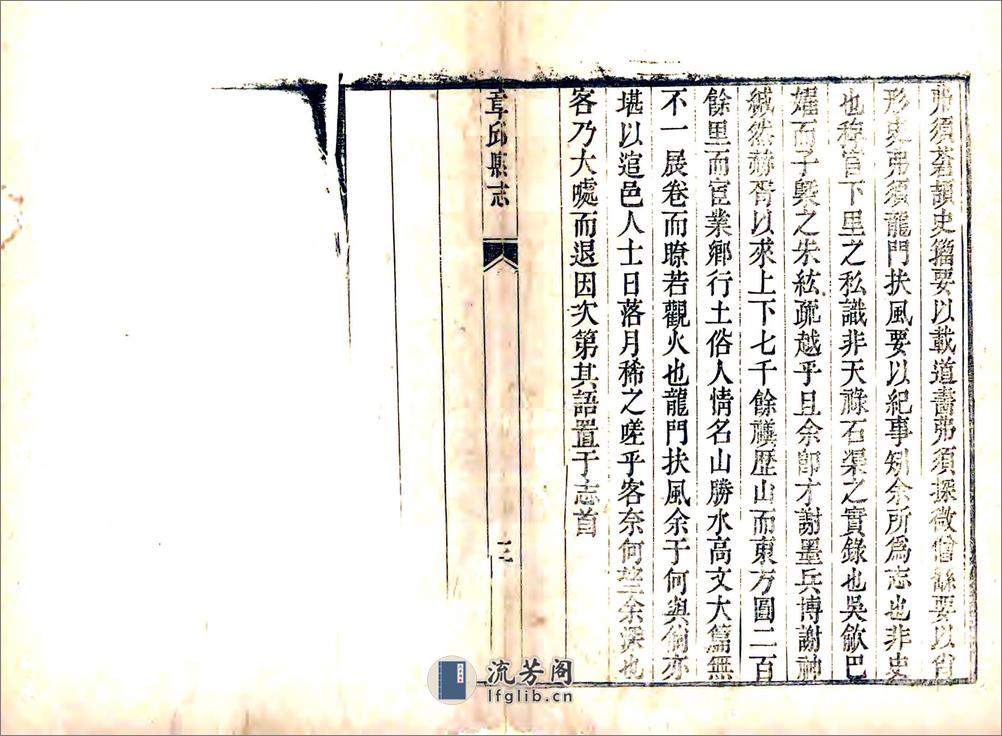 弗須蒼頡史籀要以載道書弗須探微
要以
形史弗須龍門扶風要以紀事矧余所為志也非史
也稗官下里之私識非天祿石渠之實錄也吳歈巴
嬥而子槩之朱絃疏越乎且余卽才謝墨兵博謝神
緘然赫胥以來上下七千餘禩歷山而東方圓二百
餘里而宦業鄉行土俗人情名山勝水高文大篇無
不一展卷而瞭若觀火也龍門扶風余于何與倘亦
堪以逭邑人士日落月稀之嗟乎客奈何望余深也
客乃大噱而退因次第其語置于志首
章邱縣志
三
流芳阁
lfglib.cn